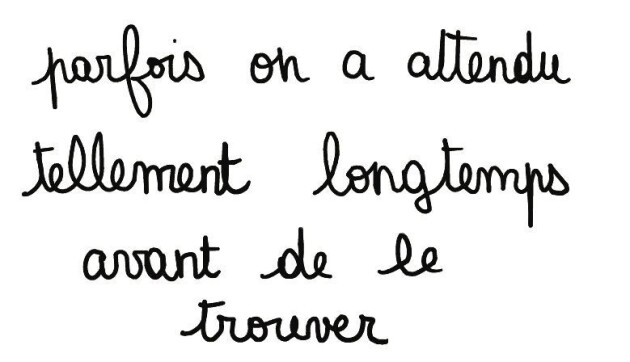 parfois on a attendu
tellement longtemps
avant de le
trouver